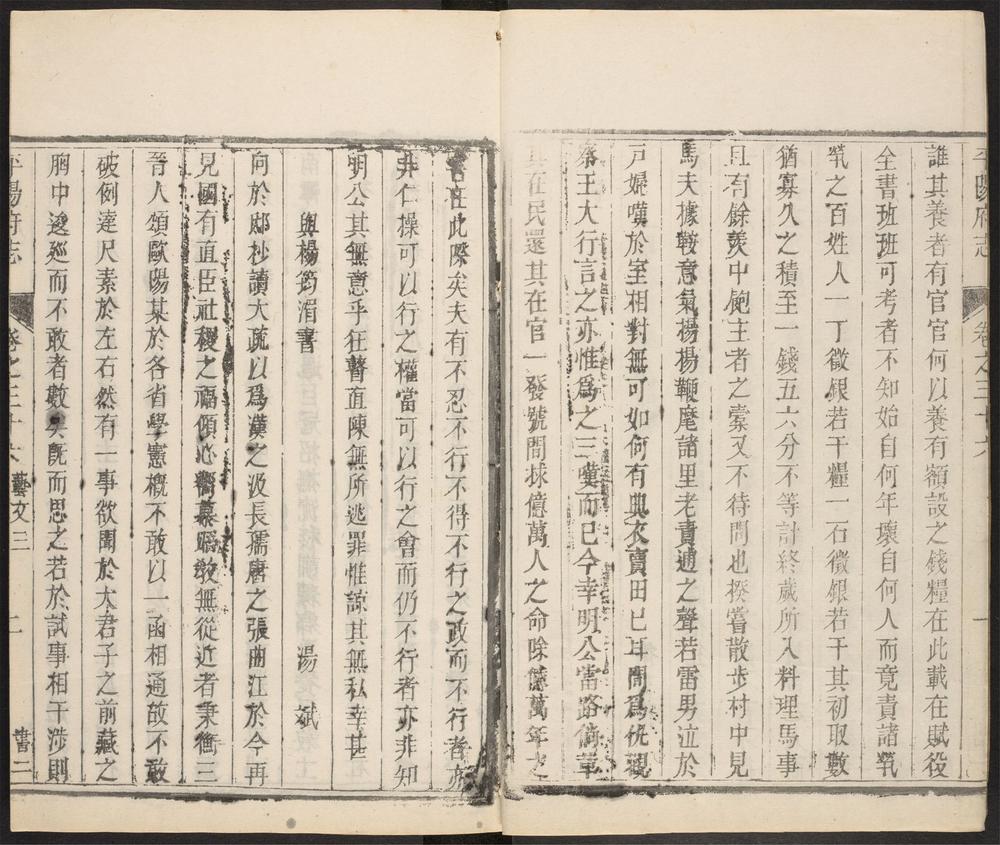 平陽府志
卷之三十六
一
誰其養者有官官何以養有額設之錢糧在此載在賦役
全書班班可考者不知始自何年壞自何人而竟責諸煢
煢之百姓人一丁徵銀若干糧一石徵銀若干其初取數
猶寡久之積至一錢五六分不等計終歲所入料理馬事
且有餘羨中飽主者之橐又不待問也揆嘗散步村中見
馬夫據鞍意氣揚揚鞭麾諸里老責逋之聲若雷男泣於
戸婦嘆於室相對無可如何有典衣賣田已耳間爲仇親
察王大行言之亦惟爲之三嘆而已今幸明公當路倘革
在民還其在官一發號間拯億萬人之命除億萬年之
害在此際矣夫有不忍不行不得不行之政而不行者亦
非仁操可以行之權當可以行之會而仍不行者亦非知
明公其無意乎狂瞽直陳無所逃罪惟諒其無私幸甚
與楊筠湄書
湯斌
向於邸杪讀大疏以爲漢之汲長孺唐之張曲江於今再
見國有直臣社稷之福傾心嚮慕無從近者秉衡三
晉人頌歐陽某於各省學憲概不敢以一函相通故不敢
破例達尺素於左右然有一事欲聞於大君子之前藏之
胸中逡廵而不敢者數矣旣而思之若於試事相干涉則
平陽府志
卷之三十六
藝文三
二
書二